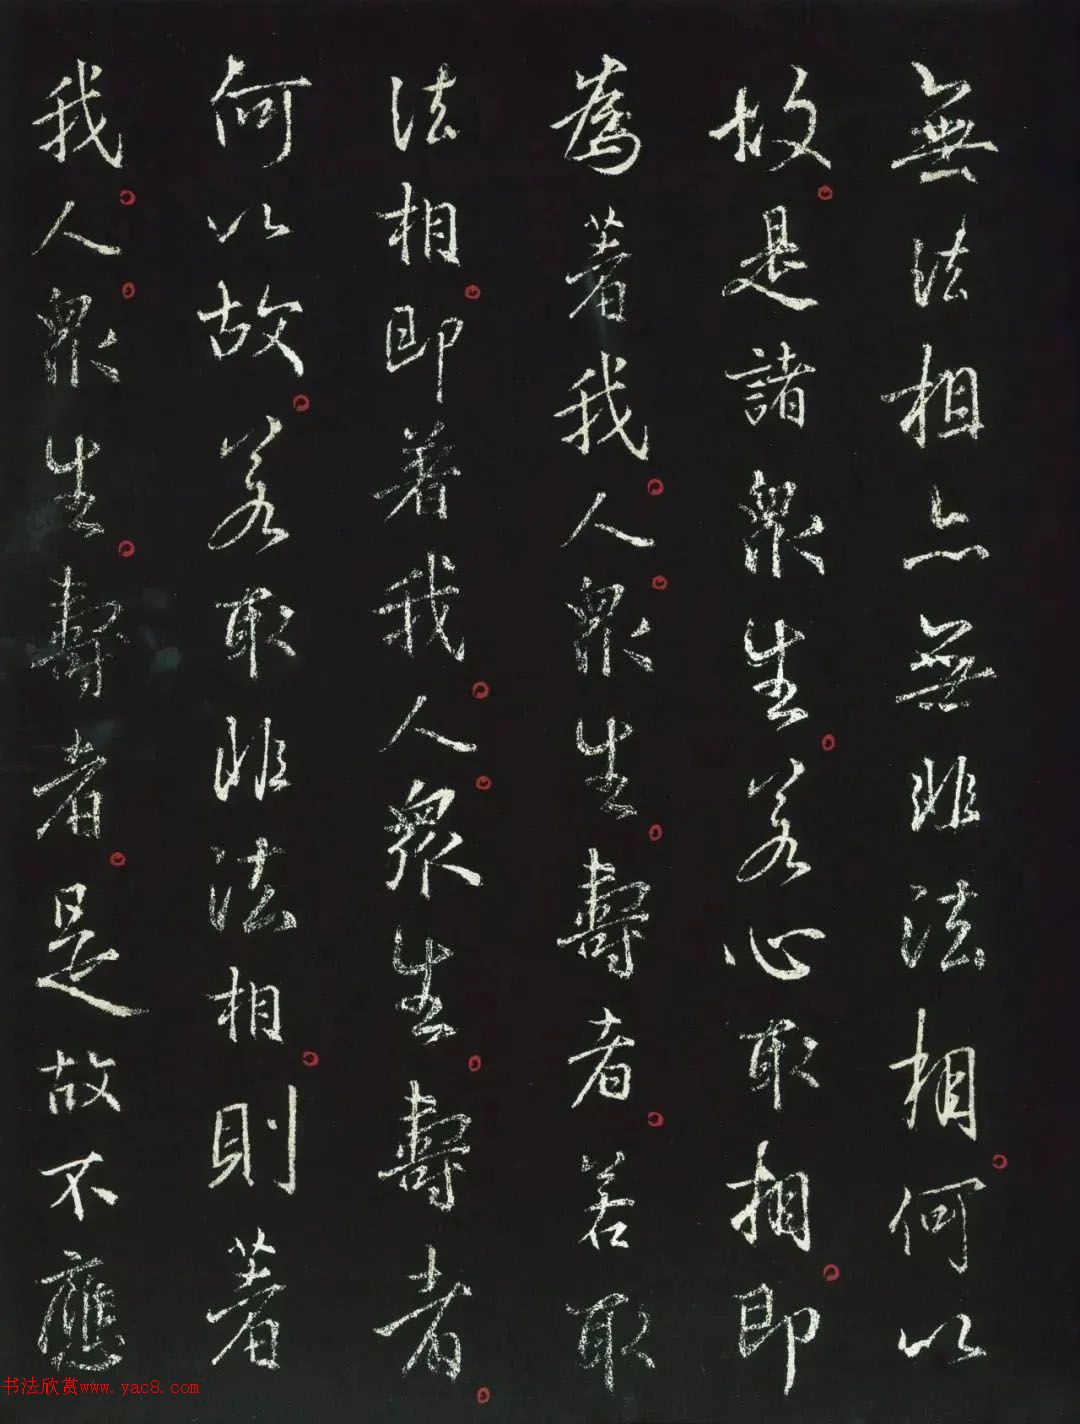 無法相亦無非法相。何以
故。是諸眾生。若心取相。即
為著我。人。眾生。壽者。若取
法相。即著我。人。眾生。壽者。
何以故。若取非法相。則著
我。人。眾生。壽者。是故不應
书法欣赏www.yac8.com